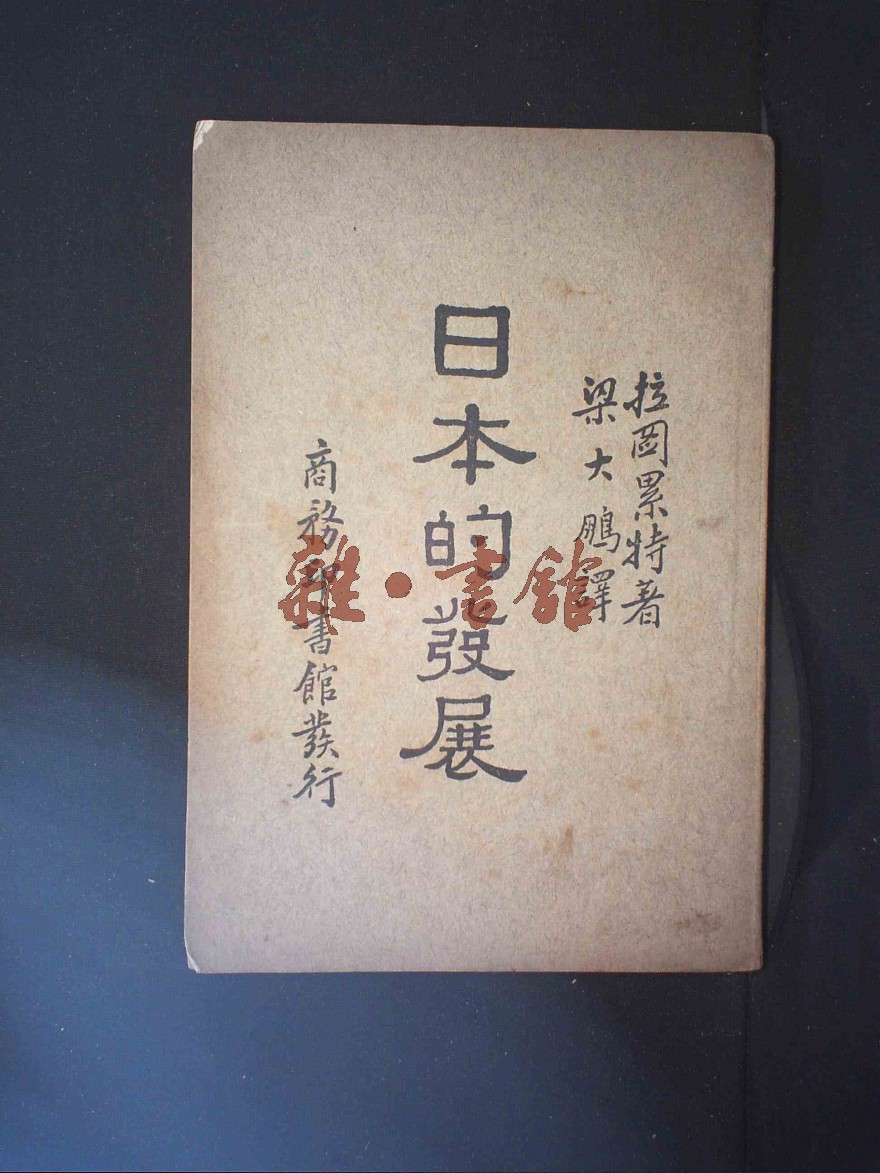 拉岡累特著
梁大鵬譯
日本的發展
商務印書館發行
雜·書館